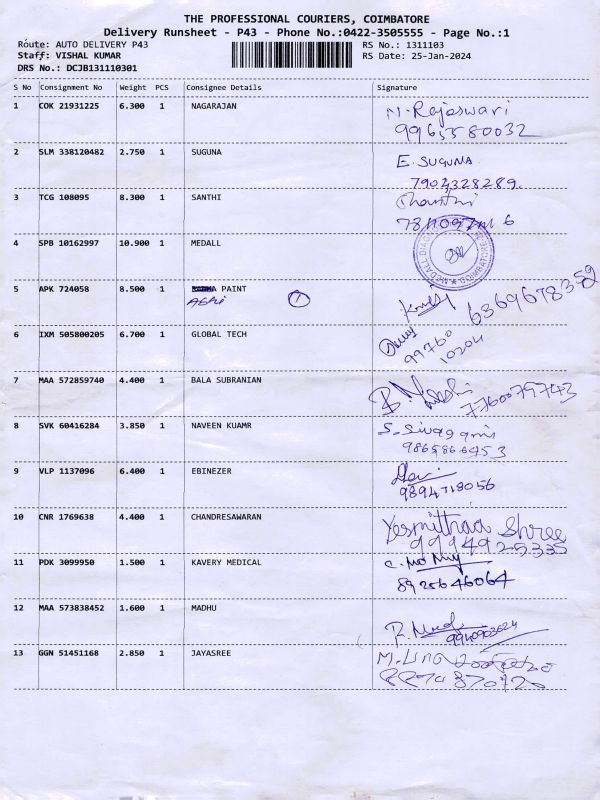 THE PROFESSIONAL COURIERS, COIMBATORE
Delivery Runsheet - P43 - Phone No.:0422-3505555 - Page No.:1
Route: AUTO DELIVERY P43 RS No.: 1311103
Staff: VISHAL KUMAR RS Date: 25-Jan-2024
DRS No.: DCJB131110301
S No Consignment No Weight PCS Consignee Details Signature
1 COK 21931225 6.300 1 NAGARAJAN M. Rajeswari
9965580032
2 SLM 338120482 2.750 1 SUGUNA E. SUGUNA
7904328289.
3 TCG 108095 8.300 1 SANTHI
4 SPB 10162997 10.900 1 MEDALL
5 APK 724058 8.500 1 PAINT 1
6369678352
6 IXM 505800205 6.700 1 GLOBAL TECH
99760
10204
7 MAA 572859740 4.400 1 BALA SUBRANIAN
7760079743
8 SVK 60416284 3.850 1 NAVEEN KUAMR S. Sivagami
9865866453
9 VLP 1137096 6.400 1 EBINEZER Devi
9894718056
10 CNR 1769638 4.400 1 CHANDRESAWARAN Yesmithaa Shree
9994925335
11 PDK 3099950 1.500 1 KAVERY MEDICAL
8925646064
12 MAA 573838452 1.600 1 MADHU
9940903624
13 GGN 51451168 2.850 1 JAYASREE